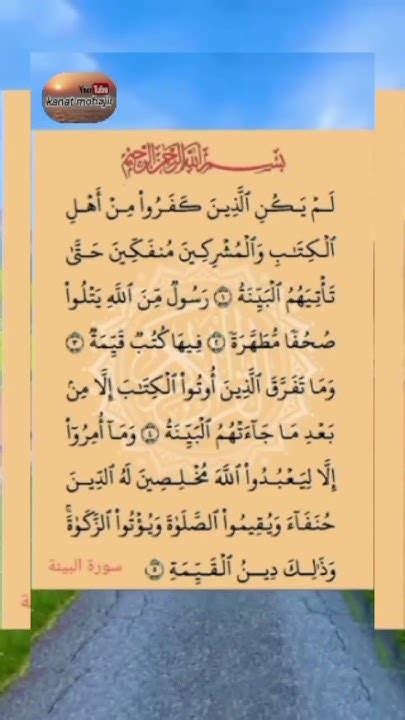 YouTube
kanat.mohajir
بِسْمِ اللَّهِ الرَّحْمَٰنِ الرَّحِيمِ
لَمْ يَكُنِ ٱلَّذِينَ كَفَرُوا۟ مِنْ أَهْلِ
ٱلْكِتَٰبِ وَٱلْمُشْرِكِينَ مُنفَكِّينَ حَتَّىٰ
تَأْتِيَهُمُ ٱلْبَيِّنَةُ ١ رَسُولٌ مِّنَ ٱللَّهِ يَتْلُوا۟
صُحُفًا مُّطَهَّرَةً ٢ فِيهَا كُتُبٌ قَيِّمَةٌ ٣
وَمَا تَفَرَّقَ ٱلَّذِينَ أُوتُوا۟ ٱلْكِتَٰبَ إِلَّا مِنۢ
بَعْدِ مَا جَآءَتْهُمُ ٱلْبَيِّنَةُ ٤ وَمَآ أُمِرُوٓا۟
إِلَّا لِيَعْبُدُوا۟ ٱللَّهَ مُخْلِصِينَ لَهُ ٱلدِّينَ
حُنَفَآءَ وَيُقِيمُوا۟ ٱلصَّلَوٰةَ وَيُؤْتُوا۟ ٱلزَّكَوٰةَ ۚ
وَذَٰلِكَ دِينُ ٱلْقَيِّمَةِ ٥ سورة البينة